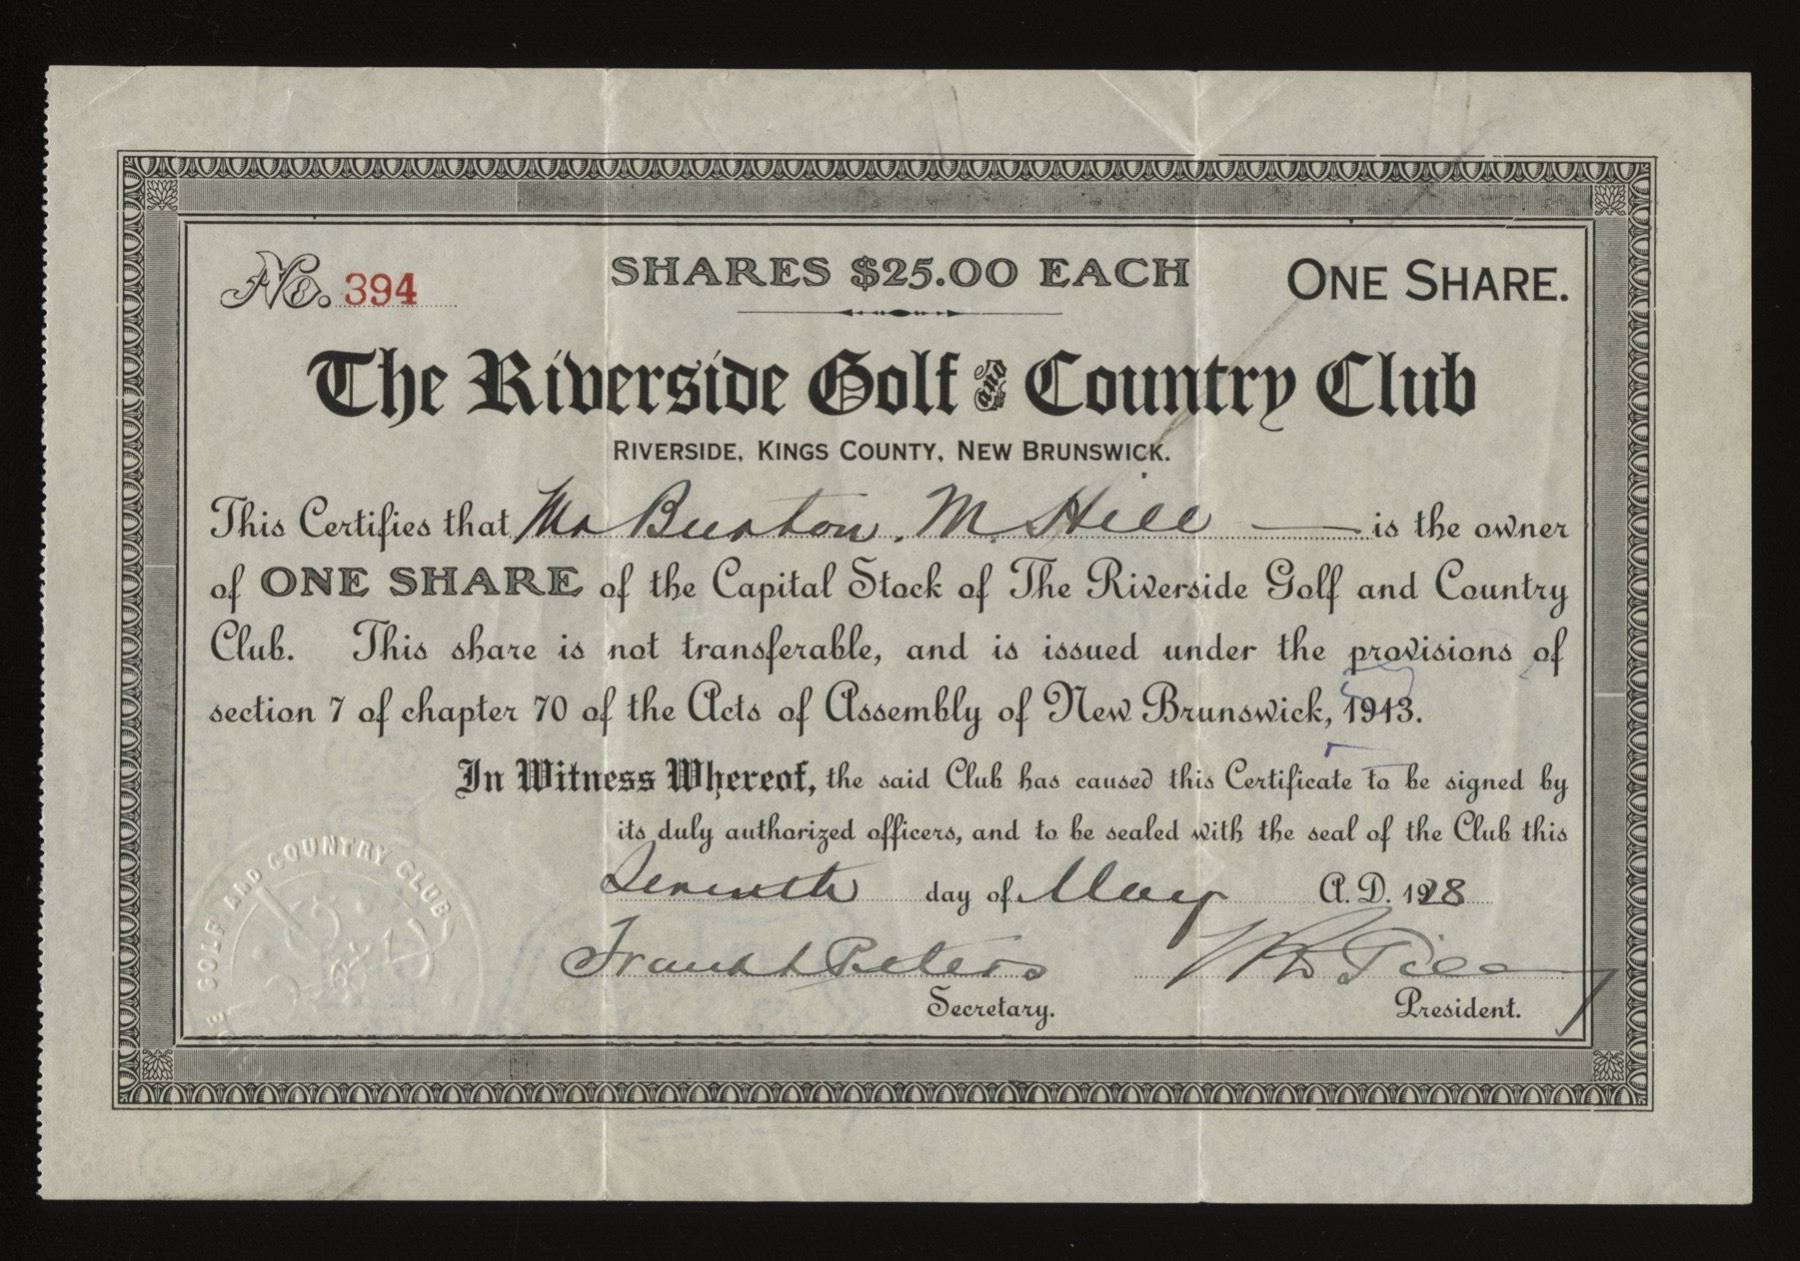 No. 394
SHARES $25.00 EACH
ONE SHARE.
The Riverside Golf and Country Club
RIVERSIDE, KINGS COUNTY, NEW BRUNSWICK.
This Certifies that Mr Burton. M. Hill is the owner
of ONE SHARE of the Capital Stock of The Riverside Golf and Country
Club. This share is not transferable, and is issued under the provisions of
section 7 of chapter 70 of the Acts of Assembly of New Brunswick, 1913.
In Witness Whereof, the said Club has caused this Certificate to be signed by
its duly authorized officers, and to be sealed with the seal of the Club this
Seventh day of May A.D. 1928
Frank L Peters
Secretary.
President.
GOLF AND COUNTRY CLUB